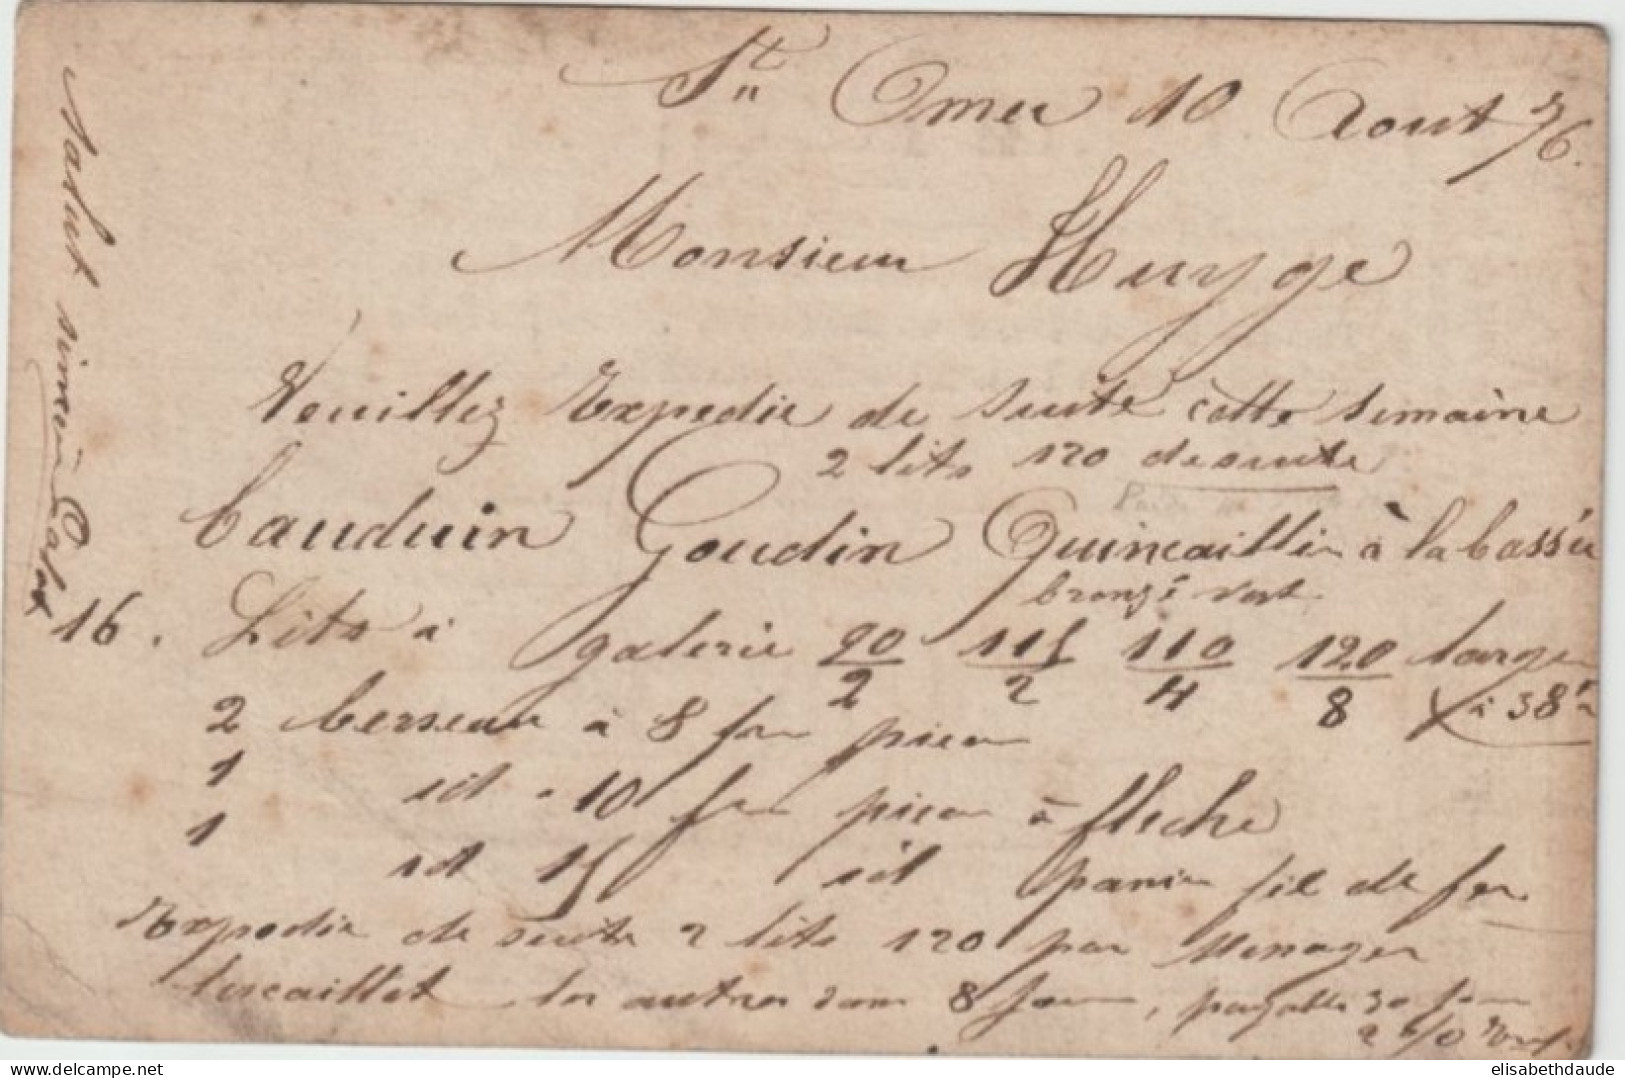 St Omer 10 Aout 76.
Monsieur Huyge
Veuillez Expedie de suite cette semaine
2 lits 120 de suite
Cauduin Goudin Quincaillier à la bassée
bronzé vert
16. Lits à galerie 90/2 115/2 110/4 120/8 large
à 38 f
2 berseau à 8 fr piece
1 id - 10 fr piece à fleche
1 id 15 id panier fil de fer
Expedie de suite 2 lits 120 par Menager
les autres dans 8 jours, payable 30 jours
2 %
salut